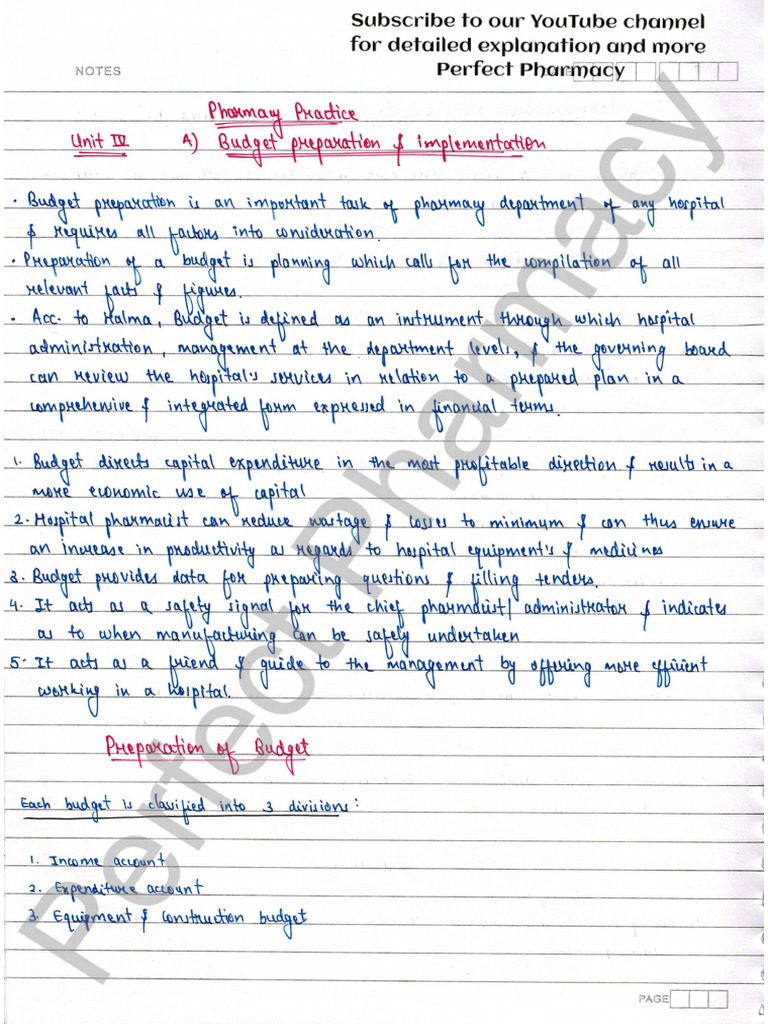 Subscribe to our YouTube channel
for detailed explanation and more
Perfect Pharmacy
NOTES
Pharmay Practice
Unit IV A) Budget preparation & implementation
• Budget preparation is an important task of pharmacy department of any hospital
& requires all factors into consideration.
• Preparation of a budget is planning which calls for the compilation of all
relevant facts & figures.
• Acc. to Halma, Budget is defined as an instrument through which hospital
administration, management at the department levels, & the governing board
can review the hospital's services in relation to a prepared plan in a
comprehensive & integrated form expressed in financial terms.
1. Budget directs capital expenditure in the most profitable direction & results in a
more economic use of capital
2. Hospital pharmacist can reduce wastage & losses to minimum & can thus ensure
an increase in productivity as regards to hospital equipment's & medicines
3. Budget provides data for preparing questions & filling tenders.
4. It acts as a safety signal for the chief pharmacist/administrator & indicates
as to when manufacturing can be safely undertaken
5. It acts as a friend & guide to the management by offering more efficient
working in a hospital.
Preparation of Budget
Each budget is classified into 3 divisions:
1. Income account
2. Expenditure account
3. Equipment & construction budget
PAGE
Perfect Pharmacy